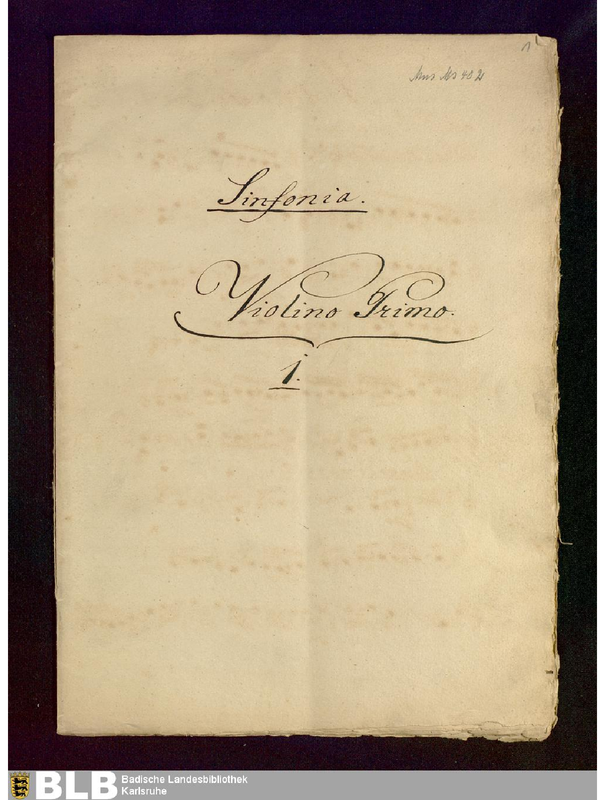 1
Mus. Ms 402
Sinfonia.
Violino Primo.
1.
BLB Badische Landesbibliothek
Karlsruhe